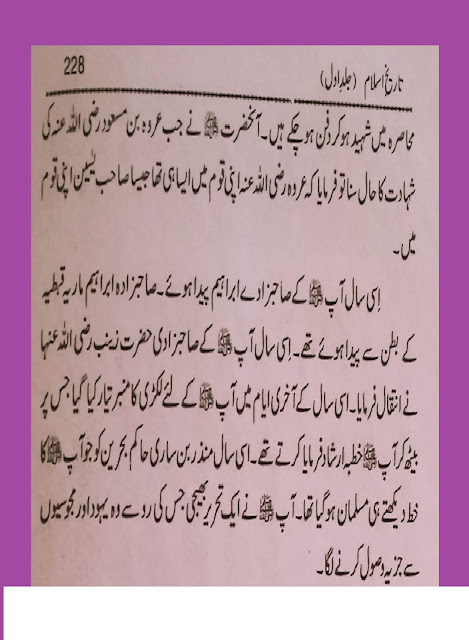 تاریخ اسلام (جلد اول) 228
محاصرہ میں شہید ہو کر دفن ہو چکے ہیں۔ آنحضرت ﷺ نے جب عروہ بن مسعود رضی اللہ عنہ کی
شہادت کا حال سنا تو فرمایا کہ عروہ رضی اللہ عنہ اپنی قوم میں ایسا ہی تھا جیسا صاحب یٰسین اپنی قوم
میں۔
اِسی سال آپ ﷺ کے صاحبزادے ابراہیم پیدا ہوئے۔ صاحبزادہ ابراہیم ماریہ قبطیہ
کے بطن سے پیدا ہوئے تھے۔ اِسی سال آپ ﷺ کے صاحبزادی حضرت زینب رضی اللہ عنہا
نے انتقال فرمایا۔ اسی سال کے آخری ایام میں آپ ﷺ کے لئے لکڑی کا منبر تیار کیا گیا جس پر
بیٹھ کر آپ ﷺ خطبہ ارشاد فرمایا کرتے تھے۔ اسی سال منذر بن ساری حاکم بحرین کو جو آپ ﷺ کا
خط دیکھتے ہی مسلمان ہو گیا تھا۔ آپ ﷺ نے ایک تحریر بھیجی جس کی رو سے وہ یہود اور مجوسیوں
سے جزیہ وصول کرنے لگا۔